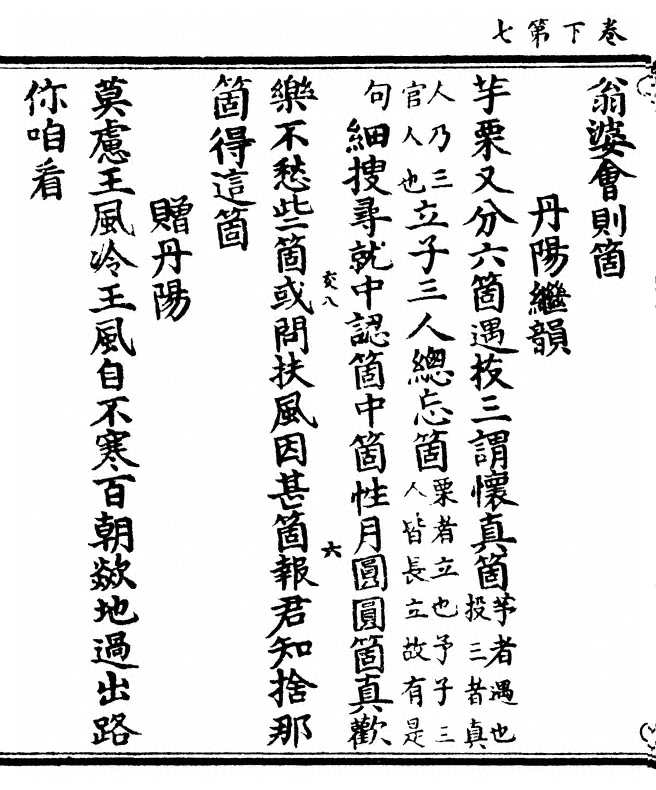 卷下第七
翁婆會則箇
丹陽繼韻
芋栗又分六箇遇抜三謂懷真箇芋者遇也投三者真
人乃三官人也立子三人總忘箇栗者立也予子三人皆長立故有是
句細搜尋就中認箇中箇性月圓圓箇真歡
交八
六
樂不愁些箇或問扶風因甚箇報君知捨那
箇得這箇
贈丹陽
莫慮王風冷王風自不寒百朝歘地過出路
你咱看